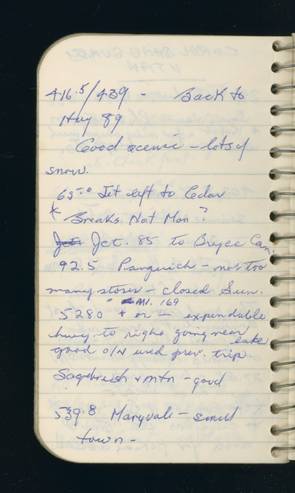 416.5/439 - Back to
Hwy 89
Good scenic - lots of
snow.
65 Jct left to Cedar
* Breaks Nat Mon ?
Jct. 85 to Bryce Can.
92.5 Panguich - not too
many stores - closed Sun.
Alt. 169
5280 + or - expendable
hwy to right going near lake
good o/n used prev. trip
Sagebrush & mtn - good
539.8 Maryvale - small
town -